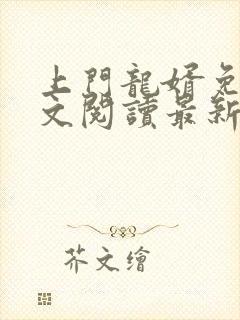 上門龍婿免
文閱讀最新
芥文繪